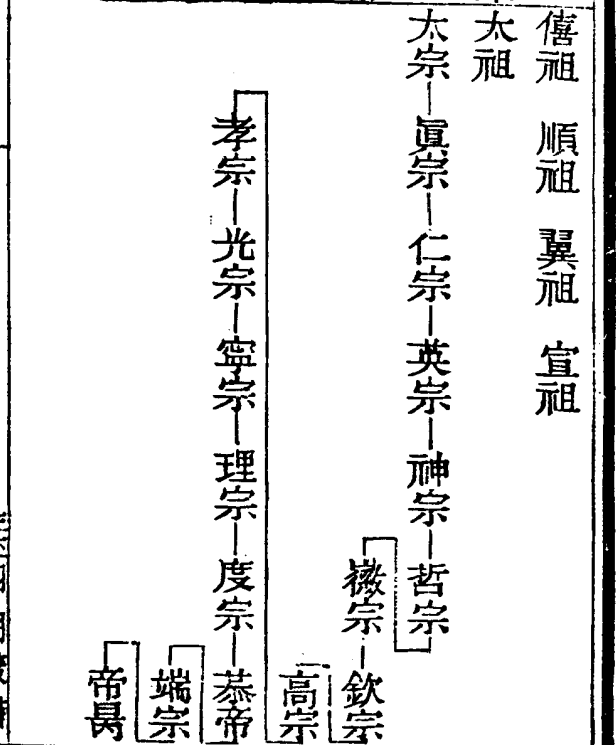 僖祖 順祖 翼祖 宣祖
太祖
太宗 眞宗 仁宗 英宗 神宗 哲宗
徽宗 欽宗
高宗
孝宗 光宗 寧宗 理宗 度宗 恭帝
端宗
帝昺